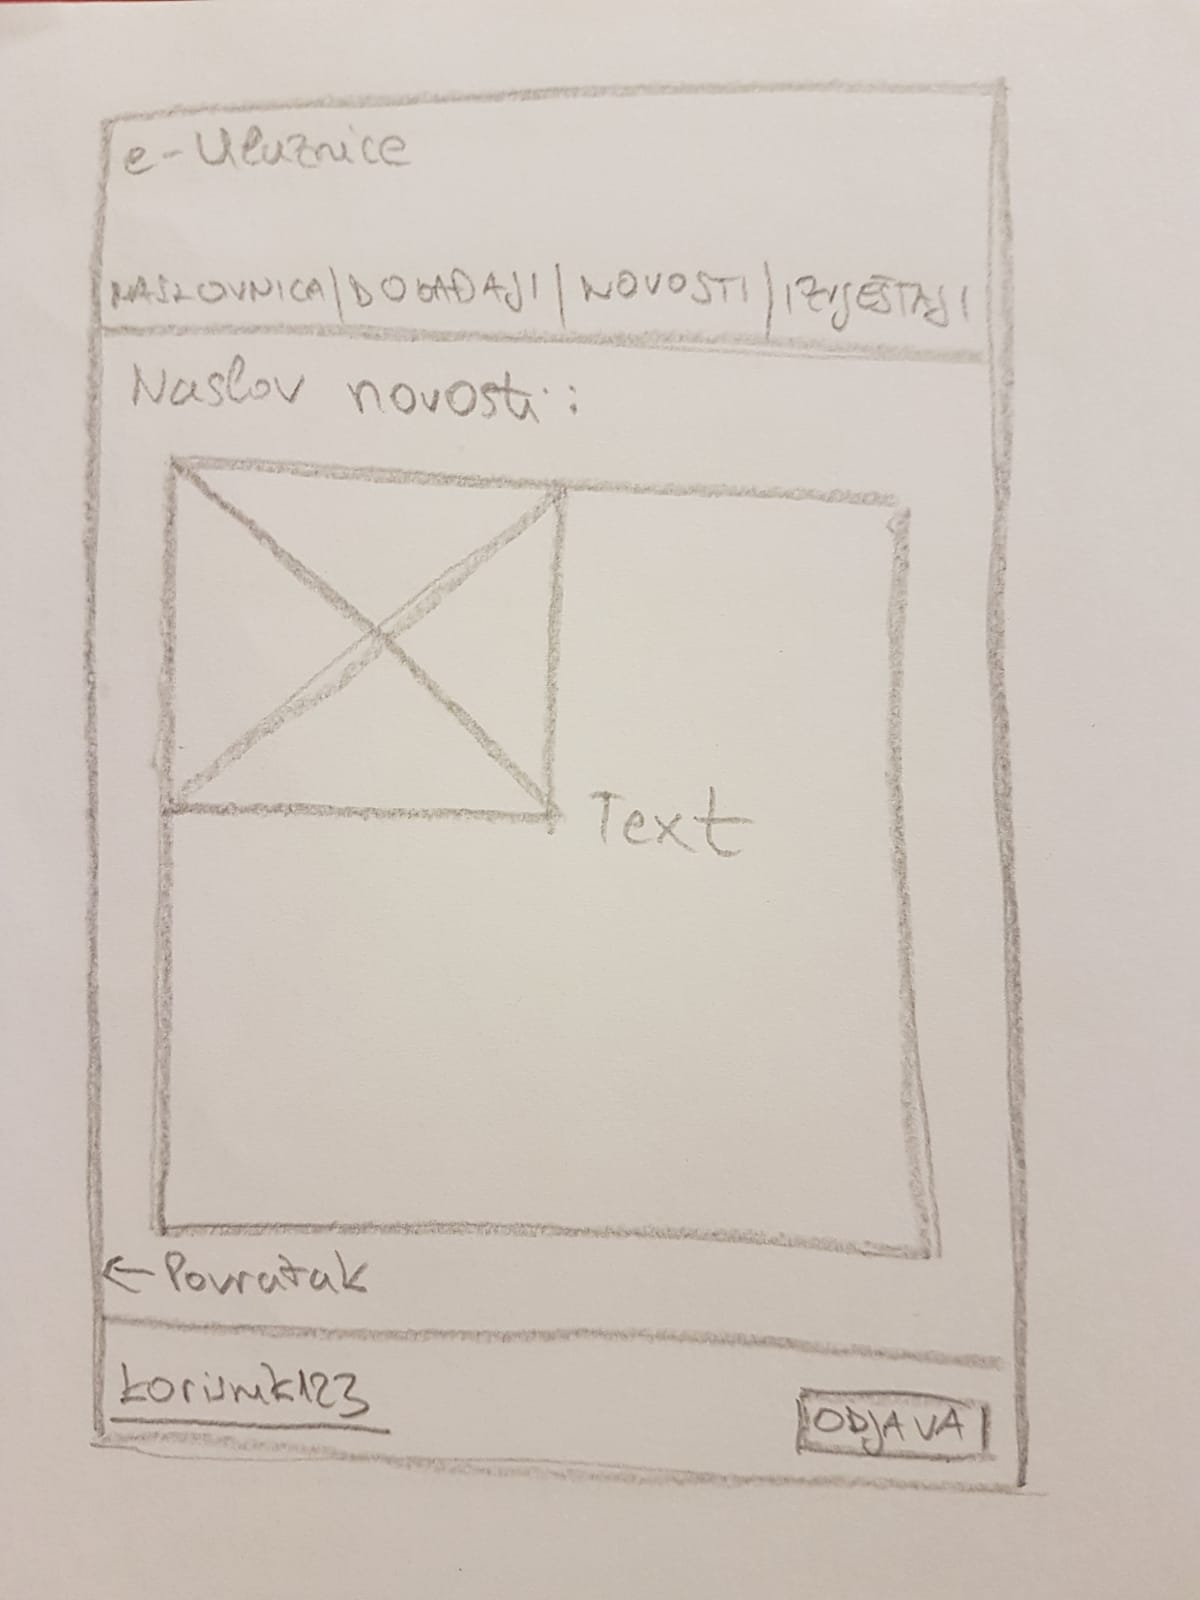 e-Ulaznice
NASLOVNICA | DOGAĐAJI | NOVOSTI | IZVJEŠTAJI
Naslov novosti:
Text
← Povratak
korisnik123
ODJAVA